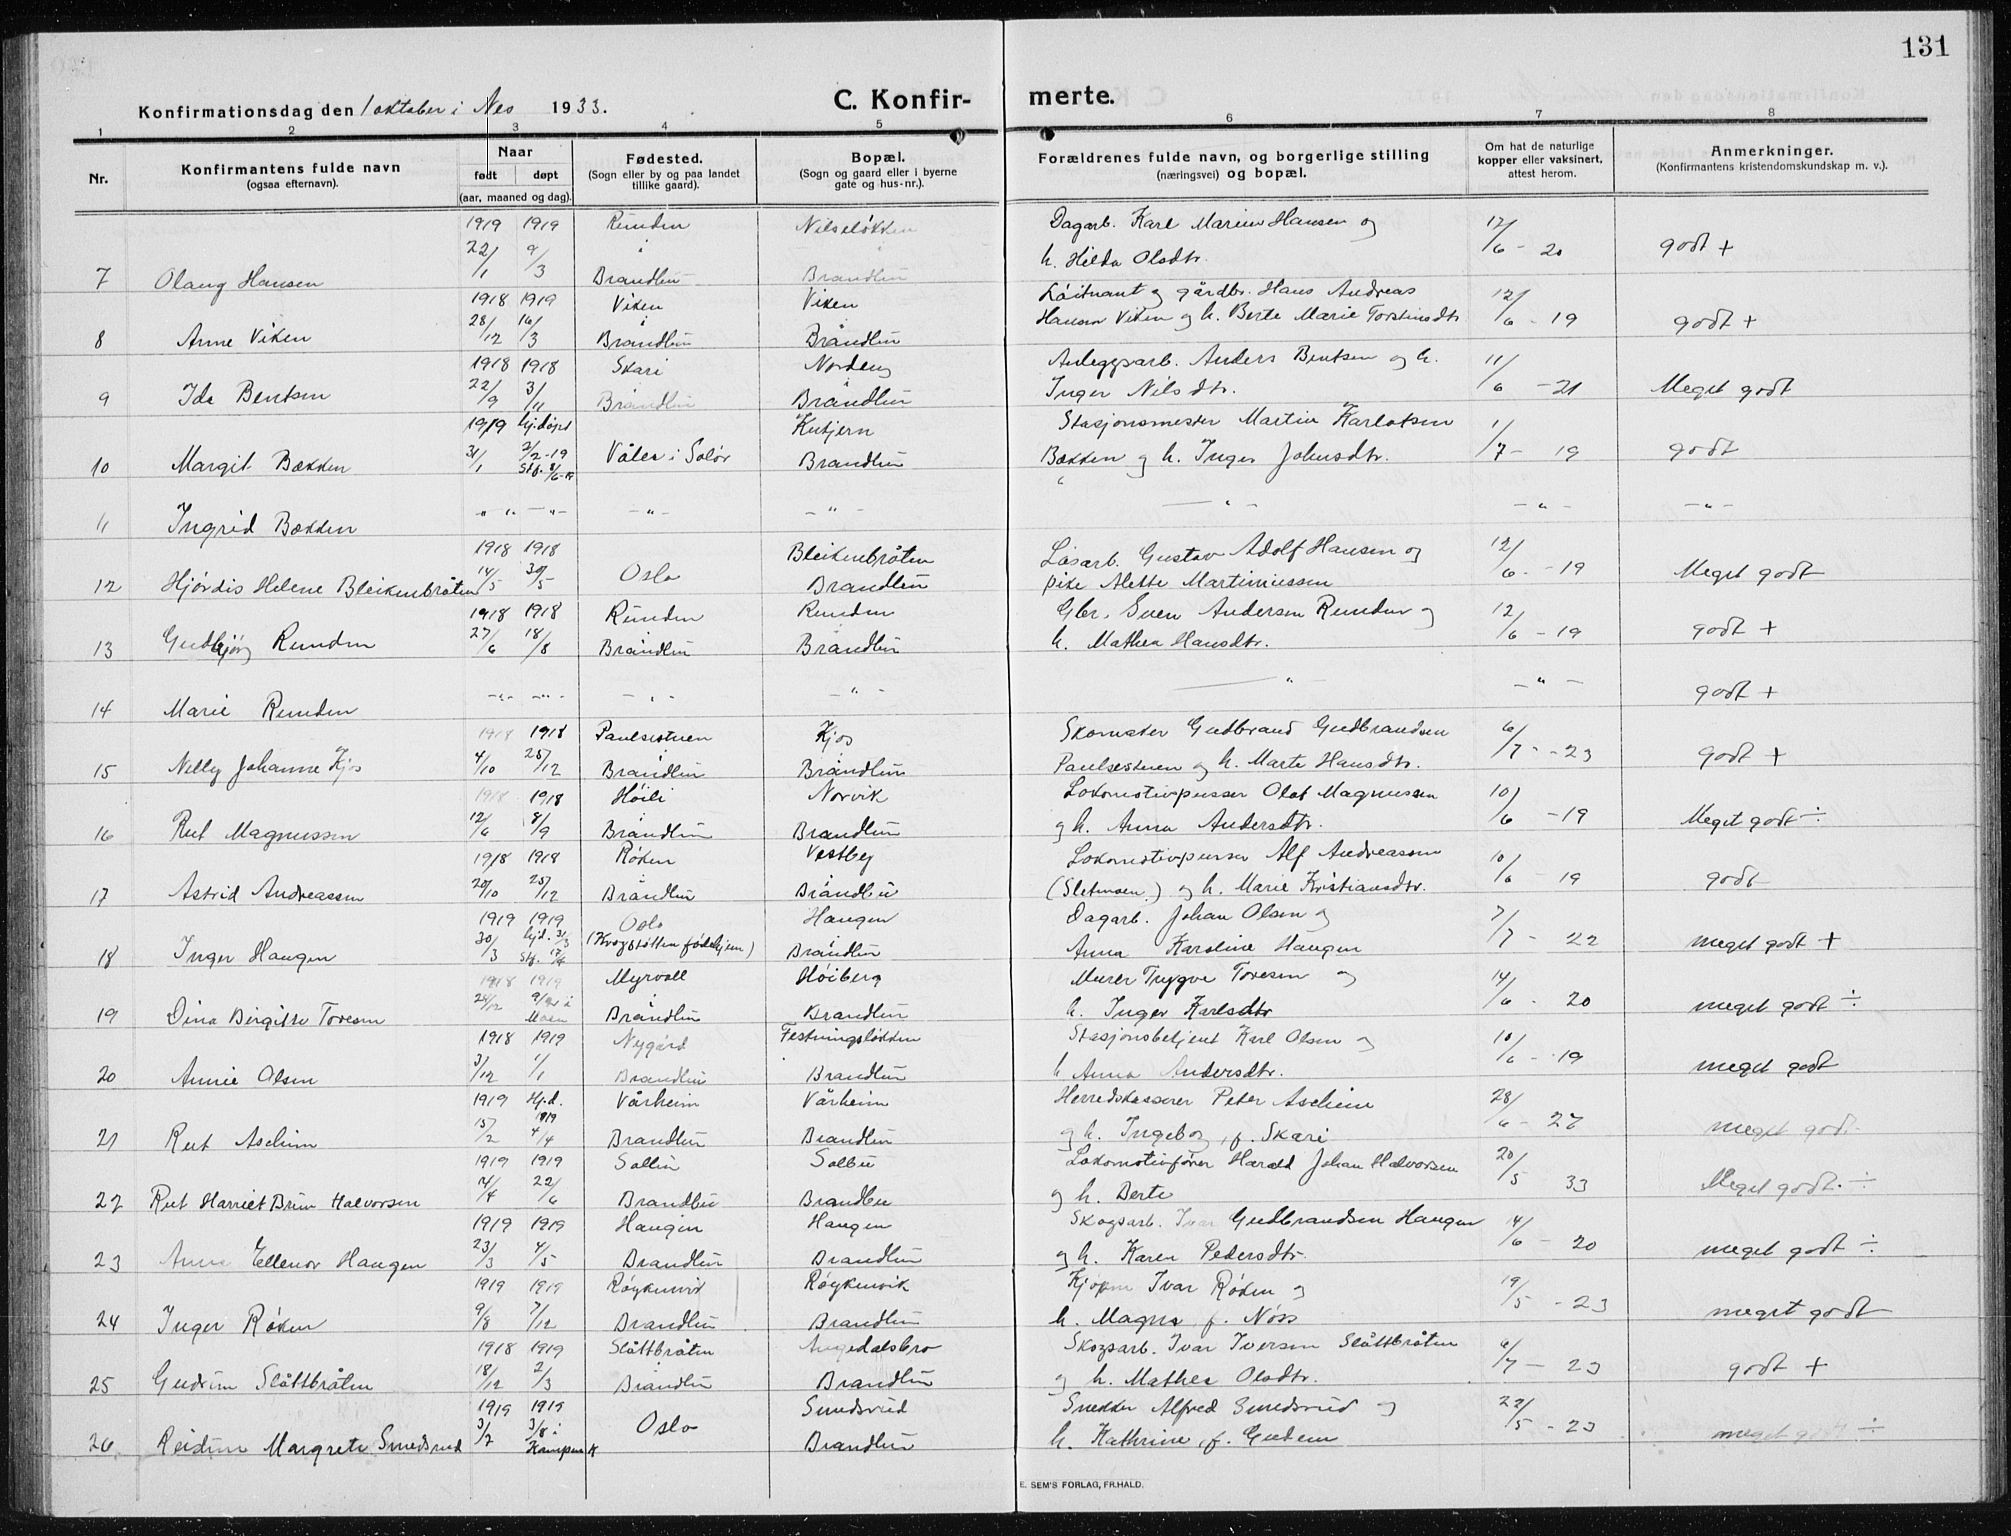 131
Konfirmationsdag den 1 oktober i Nes 1933.
C. Konfirmerte.
1 2 3 4 5 6 7 8
Nr.
Konfirmantens fulde navn
(ogsaa efternavn).
Naar
født døpt
(aar, maaned og dag).
Fødested.
(Sogn eller by og paa landet
tillike gaard).
Bopæl.
(Sogn og gaard eller i byerne
gate og hus-nr.).
Forældrenes fulde navn, og borgerlige stilling
(næringsvei) og bopæl.
Om hat de naturlige
kopper eller vaksinert,
attest herom.
Anmerkninger.
(Konfirmantens kristendomskundskap m. v.).
1919 1919 Runden Nilseløkken Dagarb. Karl Marius Hansen og 12/6 - 20 godt +
7 Olaug Hansen 22/1 9/3 Brandbu Brandbu h. Hilda Olsdtr.
1918 1919 Viken Viken Løitnant og gårdbr. Hans Andreas 12/6 - 19 godt +
8 Anne Viken 28/12 16/3 Brandbu Brandbu Hansen Viken og h. Berte Marie Torstensdtr
1918 1918 Skari Nordeng Anleggsarb. Anders Bentsen og h. 11/6 - 21 Meget godt
9 Ida Bentsen 22/9 3/11 Brandbu Brandbu Inger Nilsdtr.
1919 hj.døpt Kutjern Stasjonsmester Martin Karlotsen 1/7 - 19 godt
10 Margit Bækken 31/1 2/2-19 Stf. 8/6-19 Våler i Solør Brandbu Bækken og h. Inger Johnsdtr.
11 Ingrid Bækken - " - - " - - " - - " - - " - - " - - " -
1918 1918 Bleikenbråten Løsarb. Gustav Adolf Hansen og 12/6 - 19 Meget godt
12 Hjørdis Helene Bleikenbråten 14/5 30/5 Oslo Brandbu pike Mette Martiniussen
1918 1918 Runden Runden Gbr. Sven Andersen Runden og 12/6 - 19 godt +
13 Gudbjørg Runden 27/6 18/8 Brandbu Brandbu h. Mathea Hansdtr.
14 Marie Runden - " - - " - - " - - " - - " - - " - godt +
1918 1918 Paulsestuen Kjos Skomaker Gudbrand Gudbrandsen 6/7 - 23 godt +
15 Nelly Johanne Kjos 4/10 25/12 Brandbu Brandbu Paulsestuen og h. Marte Hansdtr.
1918 1918 Høili Norvik Lokomotivpusser Olaf Magnussen 10/6 - 19 Meget godt ÷
16 Rut Magnussen 12/6 8/9 Brandbu Brandbu og h. Anna Andersdtr.
1918 1918 Røken Vestby Lokomotivpusser Alf Andreassen 10/6 - 19 godt
17 Astrid Andreassen 20/10 25/12 Brandbu Brandbu (Sletmoen) og h. Marie Kristiansdtr.
1919 1919 Oslo Haugen Dagarb. Johan Olsen og 7/7 - 22 meget godt +
18 Inger Haugen 30/3 hjd. 31/3 Stf. 17/4 (Krogstøtten fødehjem) Brandbu Anna Karoline Haugen
1918 1919 Myrvoll Høiberg Murer Trygve Toresen og 14/6 - 20 meget godt ÷
19 Dina Birgitte Toresen Brandbu Brandbu h. Inger Karlsdtr
1918 1919 Nygård Festningsløkken Stasjonsbetjent Karl Olsen og 10/6 - 19 meget godt
20 Annie Olsen 3/12 1/1 Brandbu Brandbu h Anna Andersdtr.
1919 Hj.d. 1919 Vårheim Vårheim Herredskasserer Peter Ascheim 28/6 - 27 meget godt
21 Rut Ascheim 15/2 4/4 Brandbu Brandbu og h. Ingeborg, f. Skari
1919 1919 Solbu Solbu Lokomotivfører Harald Johan Halvorsen 20/5 33 Meget godt. ÷
22 Rut Harriet Brun Halvorsen 22/6 Brandbu Brandbu og h. Berte
1919 1919 Haugen Haugen Skogsarb. Ivar Gudbrandsen Haugen 14/6 - 20 meget godt ÷
23 Anna Ellenor Haugen 23/3 4/5 Brandbu Brandbu og h. Karen Pedersdtr.
1919 1919 Røykenvik Røykenvik Kjøpm Ivar Røken og 19/5 - 23 meget godt
24 Inger Røken 9/8 7/12 Brandbu Brandbu h. Magna f. Nøss
1918 1919 Slåttbråten Augedalsbro Skogsarb. Ivar Iversen Slåttbråten 6/7 - 23 godt +
25 Gudrun Slåttbråten 18/12 2/3 Brandbu Brandbu og h. Mathea Olsdtr.
1919 1919 Smedsrud Snekker Alfred Smedsrud og 22/5 - 23 meget godt ÷
26 Reidun Margrete Smedsrud 3/7 3/8 i Kampen k Oslo Brandbu h. Kathrine, f. Gudem
E. SEM'S FORLAG, FR.HALD.